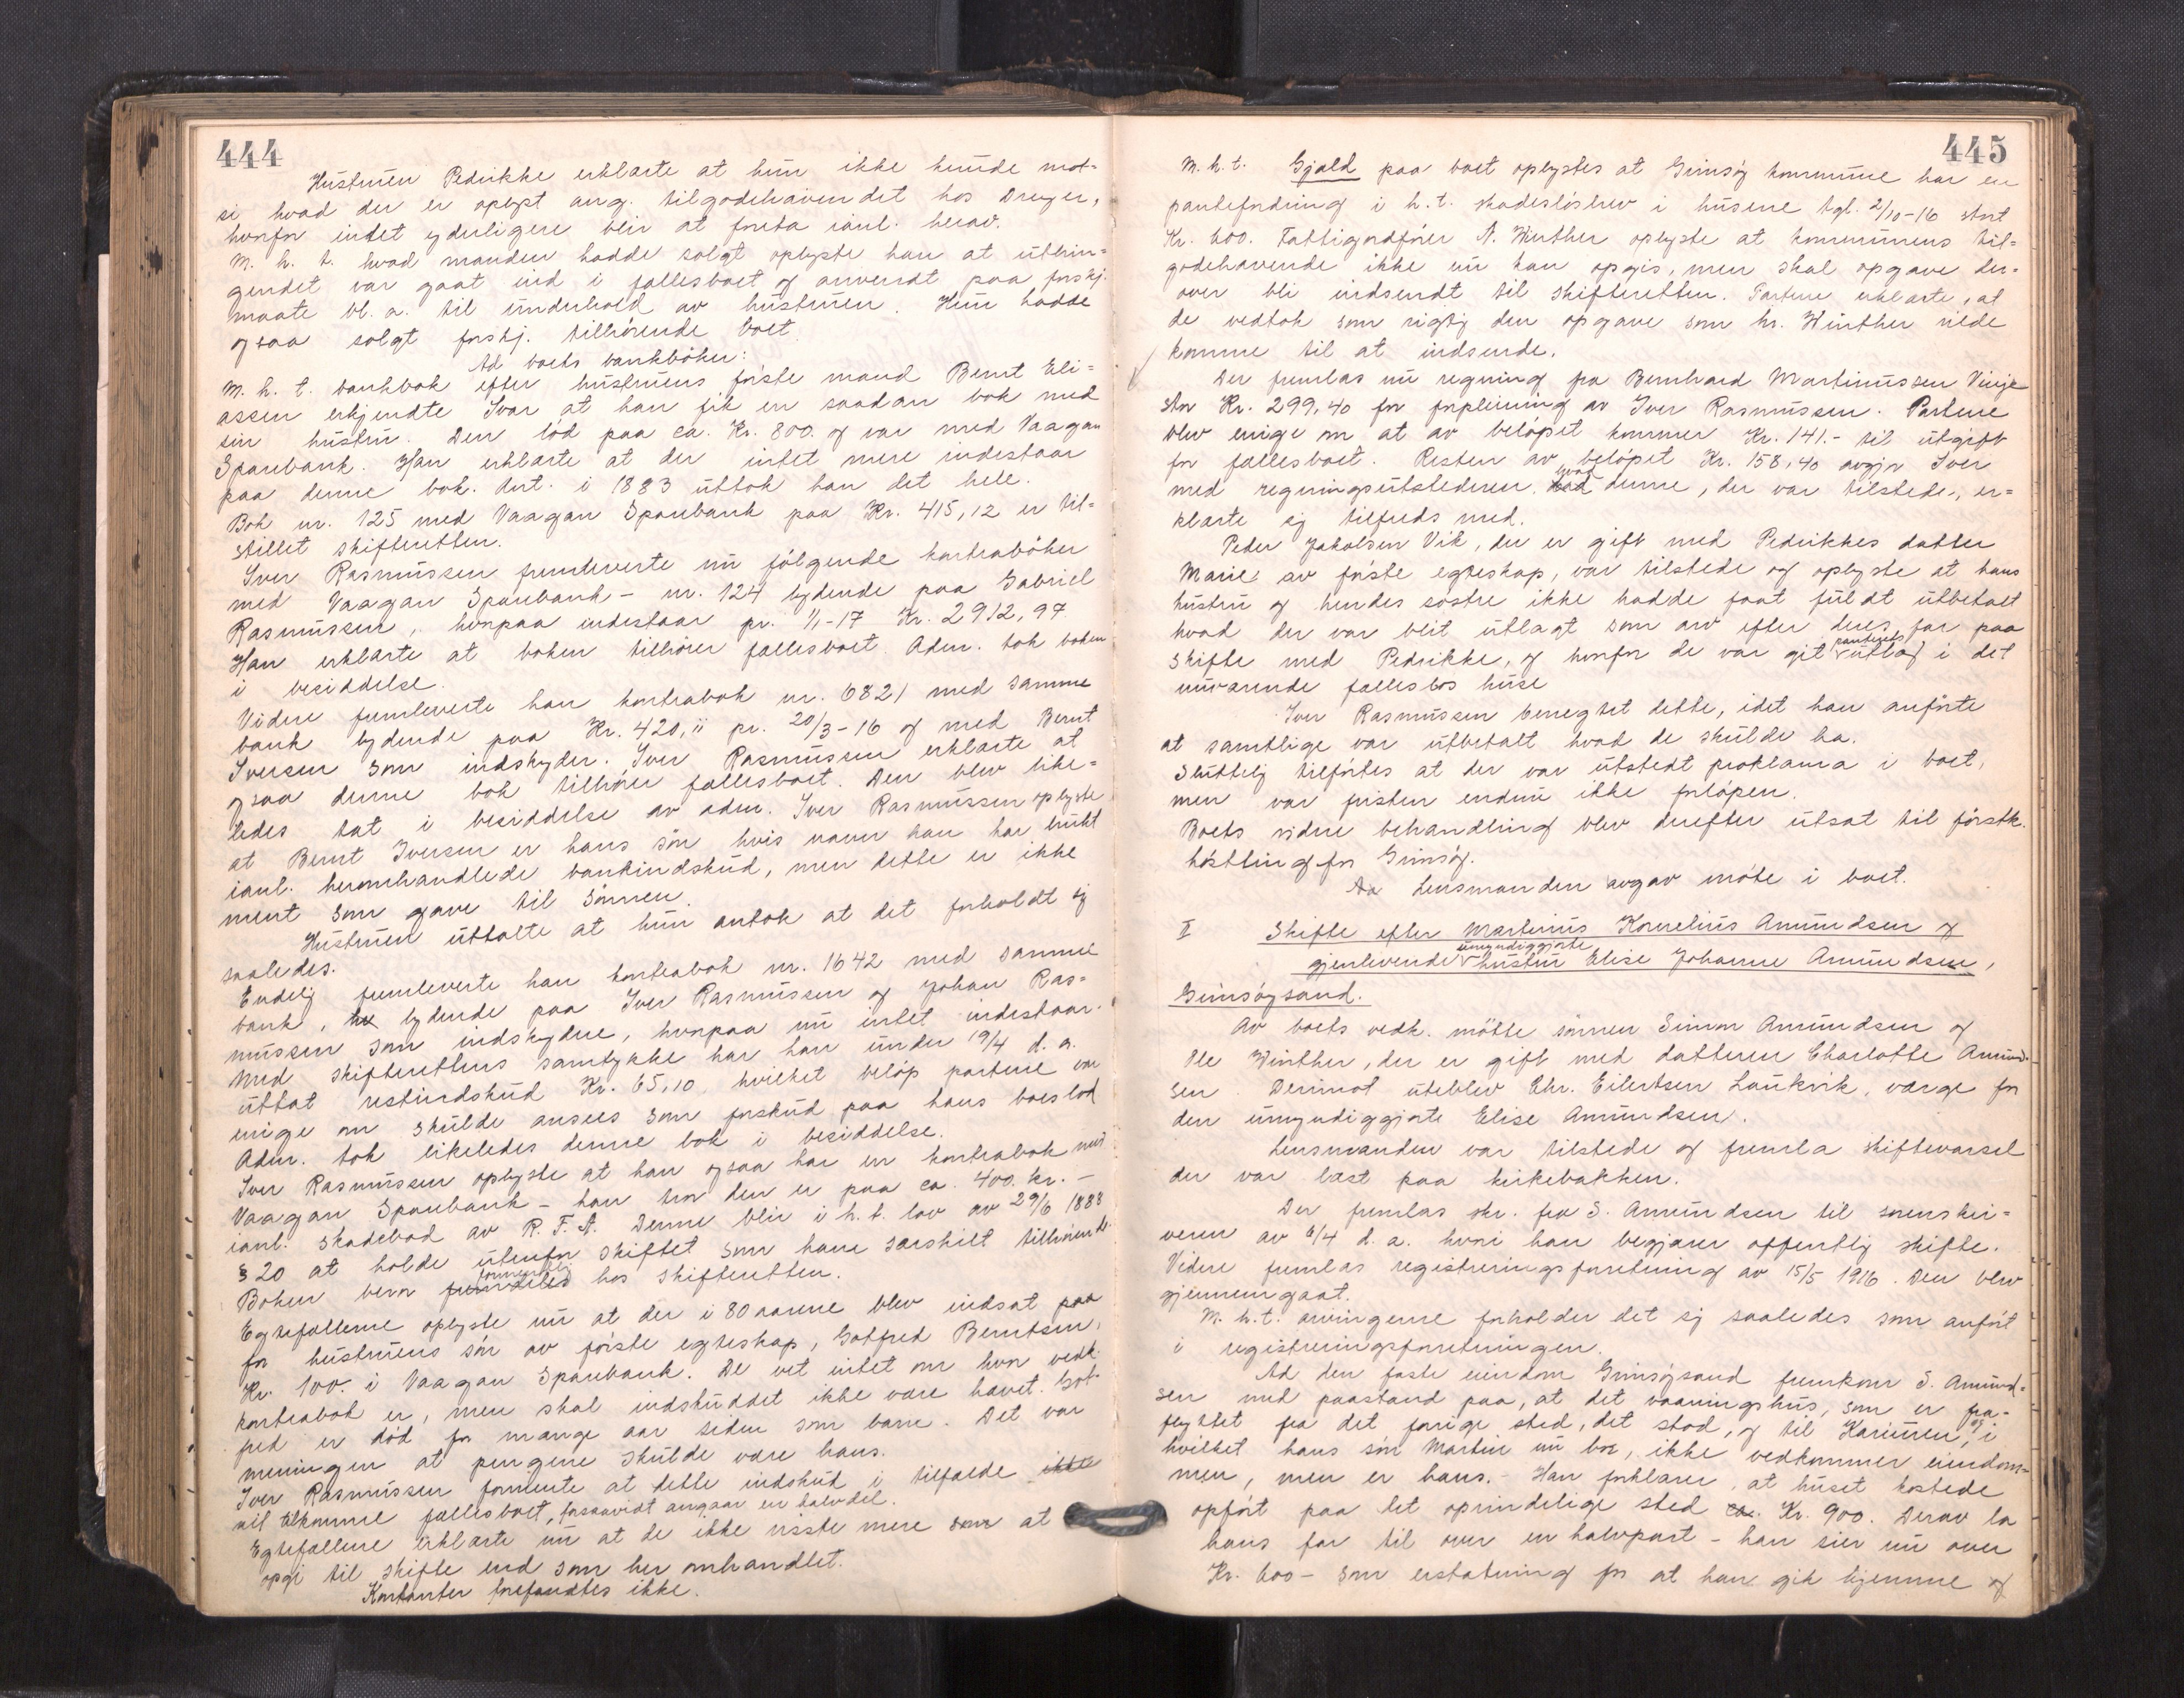 444
Hustruen Pedrikke erklærte at hun ikke kunde mot-
si hvad der er oplyst ang. tilgodehavendet hos Dreyer,
hvorfor intet yderligere blir at foreta ianl. herav.
M. h. t. hvad manden hadde solgt oplyste han at utbrin-
gendet var gaat ind i fællesboet og anvendt paa forskj.
maate bl. a. til underhold av hustruen. Hun hadde
ogsaa solgt forskj. tilhørende boet.
Ad boets bankbøker:
M. h. t. bankbok efter hustruens første mand Bernt Eli-
assen erkjendte Ivar at han fik en saadan bok med
sin hustru. Den lød paa ca. Kr. 800. og var med Vaagan
Sparebank. Han erklærte at der intet mere indestaar
paa denne bok. Ant. i 1883 uttok han det hele.
Bok nr. 125 med Vaagan Sparebank paa Kr. 415,12 er til-
stillet skifteretten.
Iver Rasmussen fremleverte nu følgende kontrabøker
med Vaagan Sparebank - nr. 124 lydende paa Gabriel
Rasmussen, hvorpaa indestaar pr. 1/1-17 Kr. 2912,97.
Han erklærte at boken tilhører fællesboet. Adm. tok boken
i besiddelse.
Videre fremleverte han kontrabok nr. 6821 med samme
bank lydende paa Kr. 420,11 pr. 20/3-16 og med Bernt
Iversen som indskyder. Iver Rasmussen erklærte at
ogsaa denne bok tilhører fællesboet. Den blev like-
ledes tat i besiddelse av adm. Iver Rasmussen oplyste
at Bernt Iversen er hans søn hvis navn han har brukt
ianl. heromhandlede bankindskud, men dette er ikke
ment som gave til sønnen.
Hustruen uttalte at hun antok at det forholdt sig
saaledes.
Endelig fremleverte han kontrabok nr. 1642 med samme
bank, lydende paa Iver Rasmussen og Johan Ras-
mussen som indskydere, hvorpaa nu intet indestaar.
Med skifterettens samtykke har han under 19/4 d. a.
uttat restindskud Kr. 65,10 hvilket beløp partene var
enige om skulde ansees som forskud paa hans boeslod
Adm. tok likeledes denne bok i besiddelse.
Iver Rasmussen oplyste at han ogsaa har en kontrabok med
Vaagan Sparebank - han tror den er paa ca. 400. kr. -
ianl. skadebod av R. F. A. Denne blir i h. t. lov av 29/6 1888
§ 20 at holde utenfor skiftet som hans særskilt tilhørende.
Boken beror formentlig hos skifteretten.
Egtefællerne oplyste nu at der i 80 aarene blev indsat paa
for hustruens søn av første egteskap, Gotfred Berntsen,
Kr. 100. i Vaagan Sparebank. De vet intet om hvor vedk.
kontrabok er, men skal indskuddet ikke være hævet. Got-
fred er død for mange aar siden som barn. Det var
meningen at pengene skulde være hans.
Iver Rasmussen formente at dette indskud i tilfælde ikke
vil tilkomme fællesboet, forsaavidt angaar en halvdel.
Egtefællene erklærte nu at de ikke visste mere som at
opgi til skifte end som her omhandlet.
Kontanter forefandtes ikke.
445
M. h. t. Gjæld paa boet oplystes at Gimsøy kommune har en
pantefordring i h. t. skadesløsbrev i husene tgl. 2/10-16 stort
Kr. 600. Fattigordfører A. Winther oplyste at kommunens til-
godehavende ikke nu kan opgis, men skal opgave der-
over bli indsendt til skifteretten. Partene erklærte, at
de vedtok som rigtig den opgave som hr. Winther vilde
komme til at indsende.
Der fremlas nu regning fra Bernhard Martinussen Vinje
stor Kr. 299,40 for forpleining av Iver Rasmussen. Partene
blev enige om at av beløpet kommer Kr. 141.- til utgift
for fællesboet. Resten av beløpet Kr. 158,40 avgjør Iver
med regningsutstederen, hvad denne, der var tilstede, er-
klærte sig tilfreds med.
Peder Jakobsen Vik, der er gift med Pedrikkes datter
Marie av første egteskap, var tilstede og oplyste at hans
hustru og hendes søstre ikke hadde faat fuldt utbetalt
hvad der var blit utlagt som arv efter deres far paa
skifte med Pedrikke, og hvorfor de var git panterets utlæg i det
nuværende fællesbos huse
Iver Rasmussen benegtet dette, idet han anførte
at samtlige var utbetalt hvad de skulde ha.
Sluttelig tilførtes at der var utstedt proklama i boet,
men var fristen endnu ikke forløpen.
Boets videre behandling blev derefter utsat til førstk.
høstting for Gimsøy.
Aa Lensmanden avgav møte i boet.
II Skifte efter Martinus Kornelius Amundsen og
gjenlevende umyndiggjorte hustru Elise Johanne Amundsen,
Gimsøysand.
Av boets vedk. møtte sønnen Simon Amundsen og
Ole Winther, der er gift med datteren Charlotte Amund-
sen. Derimot uteblev Chr. Eilertsen Laukvik, værge for
den umyndiggjorte Elise Amundsen.
Lensmanden var tilstede og fremla skiftevarsel
der var læst paa kirkebakken.
Der fremlas skr. fra S. Amundsen til sorenskri-
veren av 6/4 d. a. hvori han begjærer offentlig skifte.
Videre fremlas registreringsforretning av 15/5 1916. Den blev
gjennemgaat.
M. h. t. arvingerne forholder det sig saaledes som anført
i registreringsforretningen.
Ad den faste eiendom Gimsøysand fremkom S. Amund-
sen med paastand paa, at det vaaningshus, som er fra-
flyttet fra det forrige sted, det stod, og til Karinen, i
hvilket hans søn Martin nu bor, ikke vedkommer eiendom-
men, men er hans. - Han forklarer, at huset kostede
opført paa det oprindelige sted ca. Kr. 900. Derav la
hans far til over en halvpart - han sier nu over
Kr. 600 - som erstatning for at han gik hjemme og